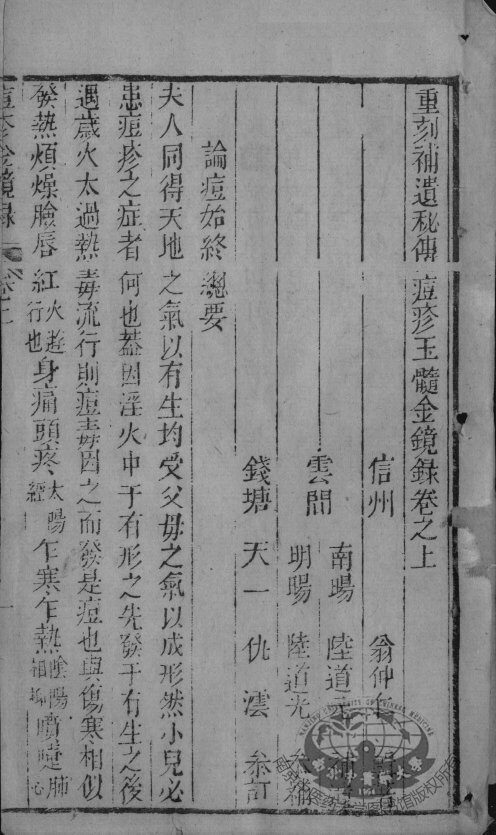 重刻補遺秘傳痘疹玉髓金鏡錄卷之上
信州 翁仲仁
南暘 陸道元 補
雲間
明暘 陸道光 叅補
錢塘 天一 仇澐 叅訂
論痘始終總要
夫人同得天地之氣以有生均受父母之氣以成形然小兒必
患痘疹之症者何也蓋因淫火中于有形之先發于有生之後
遇歲火太過熱毒流行則痘毒因之而發是痘也與傷寒相似
發熱煩燥臉唇紅火遊行也身痛頭疼太陽經乍寒乍熱陰陽相 噴嚏肺心
痘疹金鏡錄 卷上